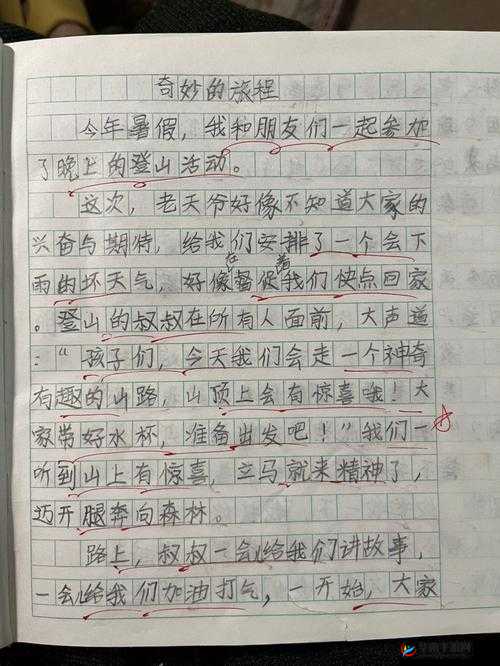 奇妙的旅程
今年暑假，我和朋友们一起参加
了晚上的登山活动。
这次，老天爷好像不知道大家的
兴奋与期待，给我们安排了一个会下
雨的坏天气，好像在督促着我们快点回家
。登山的叔叔在所有人面前，大声道
：“孩子们，今天我们会走一个神奇
有趣的山路，山顶上会有惊喜哦！大
家带好水杯，准备出发吧！”我们一
听到山上有惊喜，立马就来精神了，
迈开腿奔向森林。
路上，叔叔一会儿给我们讲故事，
一会儿给我们加油打气，一开始，大家